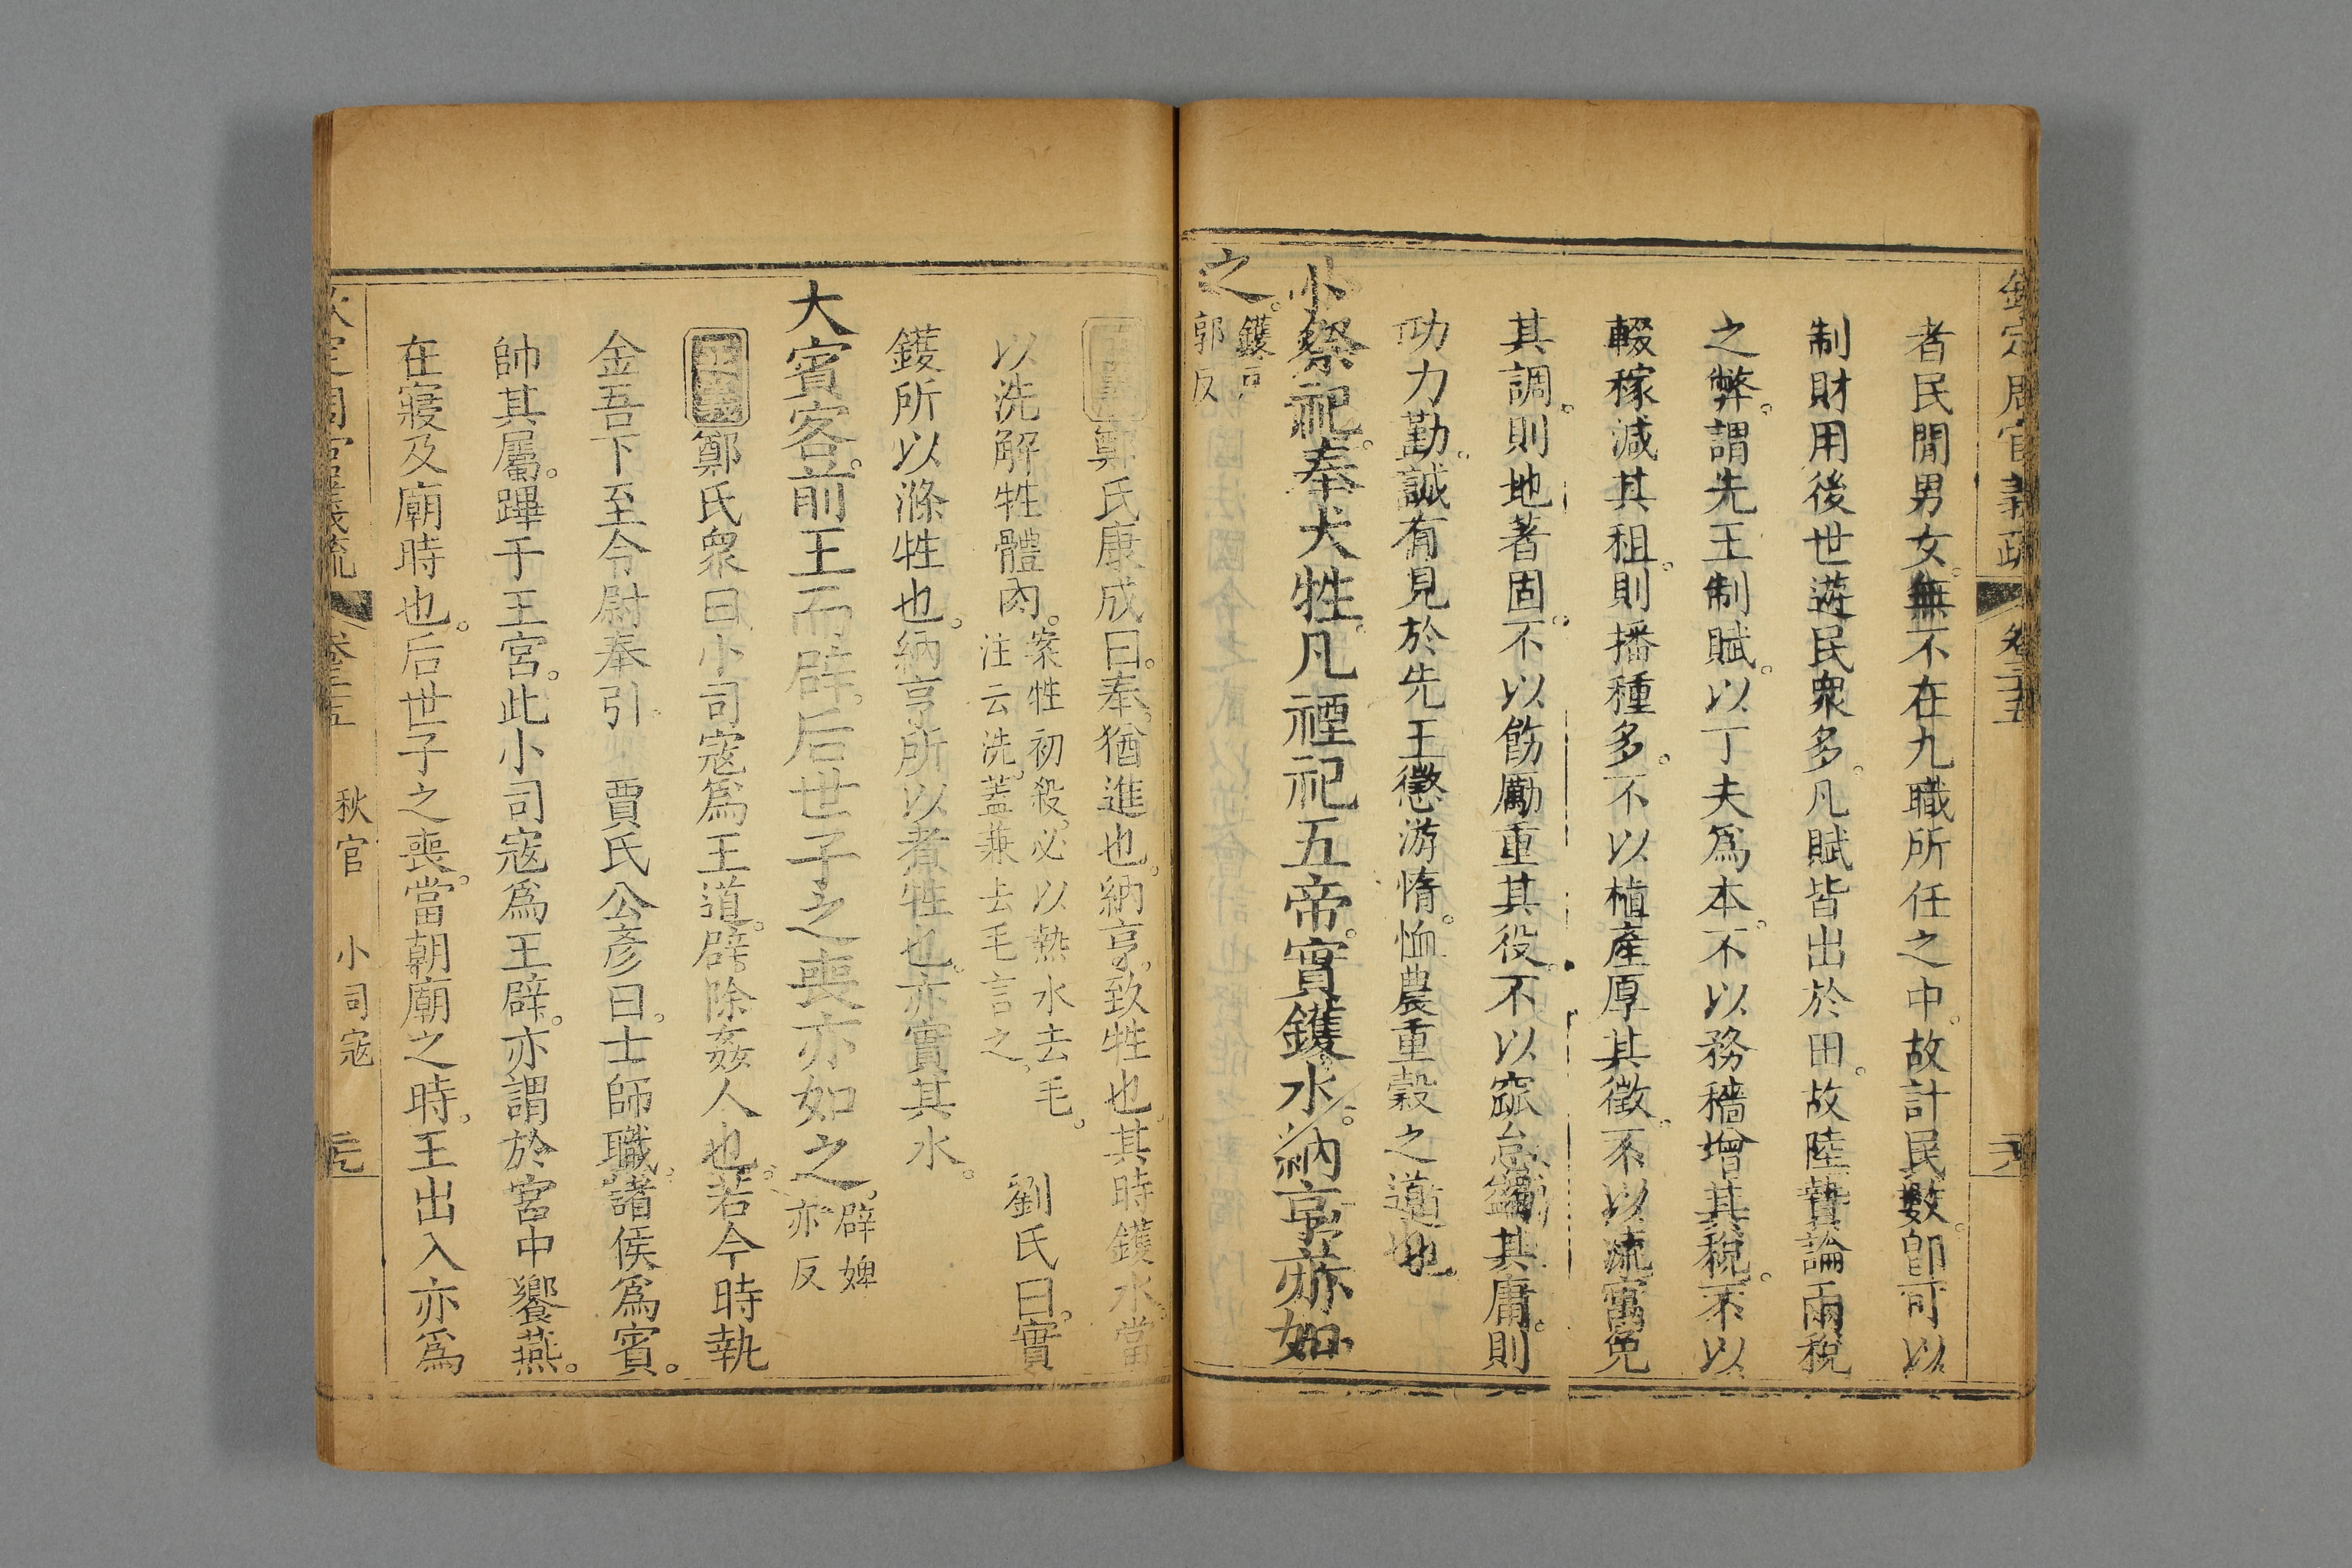 欽定周官義疏 卷三十五
者民閒男女無不在九職所任之中故計民數卽可以
制財用後世遊民衆多凡賦皆出於田故陸贄論兩稅
之弊謂先王制賦以丁夫爲本不以務穡增其稅不以
輟稼減其租則播種多不以植產厚其徵不以流寓免
其調則地著固不以飭勵重其役不以窳怠蠲其庸則
功力勤誠有見於先王懲游惰恤農重穀之道也
小祭祀奉犬牲凡禋祀五帝實鑊水納亨亦如
之鑊戶
郭反
正義鄭氏康成曰奉猶進也納亨致牲也其時鑊水當
以洗解牲體肉案牲初殺必以熱水去毛
注云洗蓋兼去毛言之 劉氏曰實
鑊所以滌牲也納亨所以煮牲也亦實其水
大賓客前王而辟后世子之喪亦如之辟婢
亦反
正義鄭氏衆曰小司寇爲王道辟除姦人也若今時執
金吾下至令尉奉引 賈氏公彥曰士師職諸侯爲賓
帥其屬蹕于王宮此小司寇爲王辟亦謂於宮中饗燕
在寢及廟時也后世子之喪當朝廟之時王出入亦爲
欽定周官義疏 卷三十五 秋官 小司寇 元